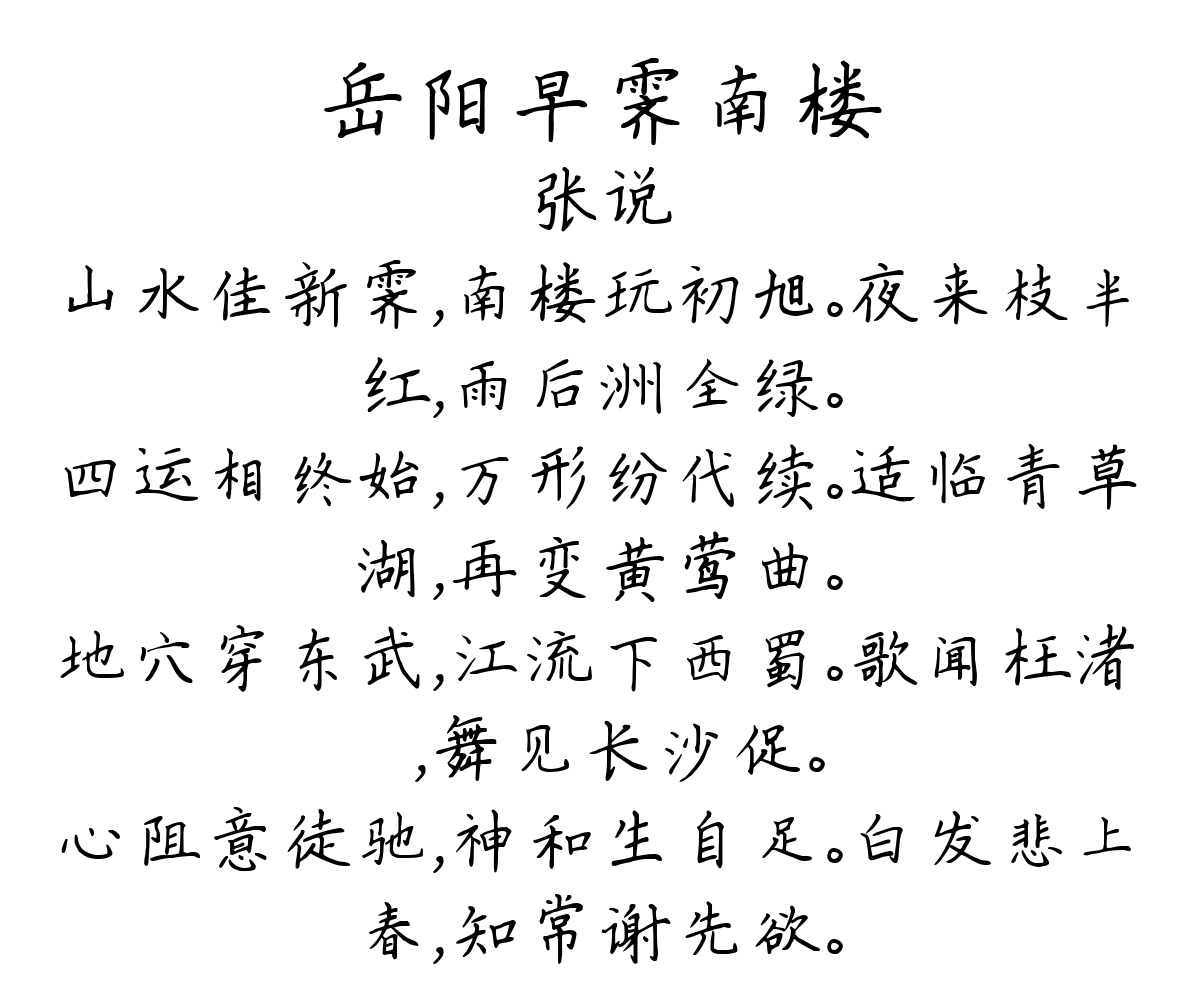 岳阳早霁南楼
张说
山水佳新霁,南楼玩初旭。夜来枝半
红,雨后洲全绿。
四运相终始,万形纷代续。适临青草
湖,再变黄莺曲。
地穴穿东武,江流下西蜀。歌闻枉渚
,舞见长沙促。
心阻意徒驰,神和生自足。白发悲上
春,知常谢先欲。